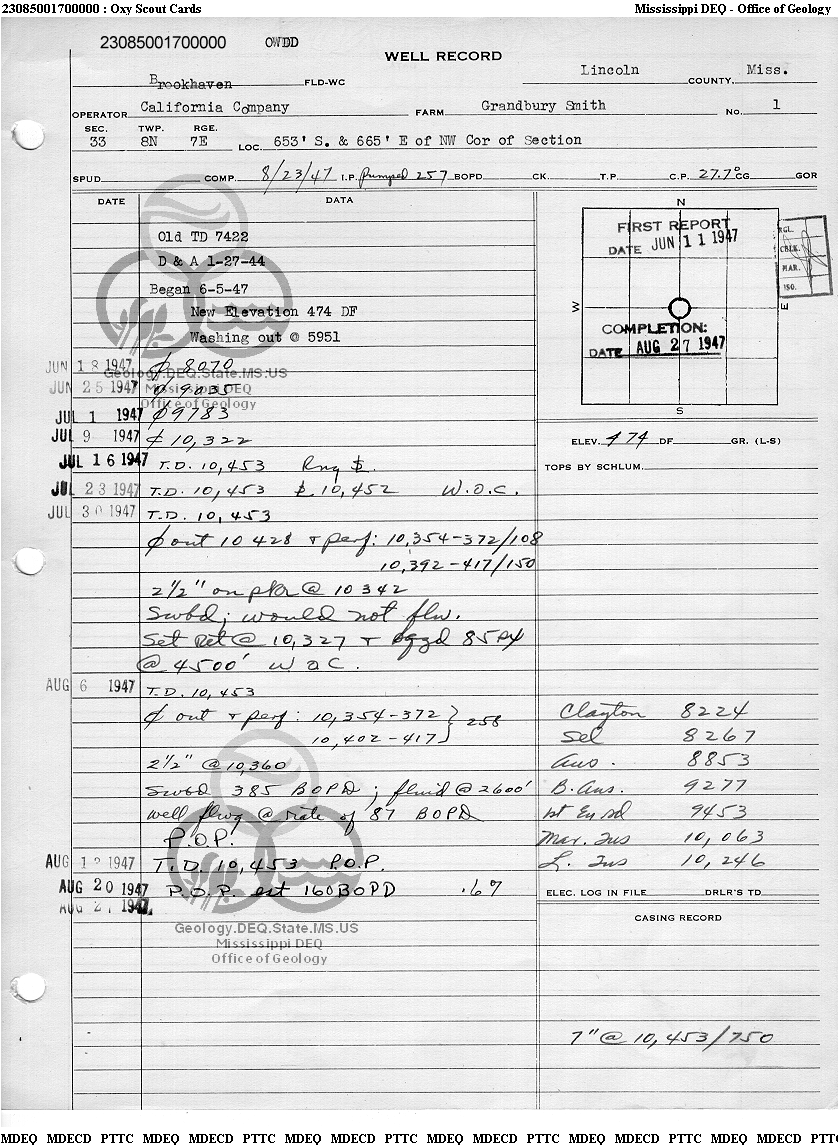 23085001700000 : Oxy Scout Cards Mississippi DEQ - Office of Geology
23085001700000 OWDD
WELL RECORD
Brookhaven FLD-WC Lincoln COUNTY, Miss.
OPERATOR California Company FARM Grandbury Smith No. 1
SEC. TWP. RGE.
33 8N 7E LOC. 653' S. & 665' E of NW Cor of Section
SPUD COMP. 8/23/47 I.P. Pumped 257 BOPD CK. T.P. C.P. 27.7° CG GOR
DATE DATA
Old TD 7422
D & A 1-27-44
Began 6-5-47
New Elevation 474 DF
Washing out @ 5951
JUN 18 1947 ₵ 8070
Geology.DEQ.State.MS.US
JUN 25 1947 ₵ 9035
Mississippi DEQ
Office of Geology
JUL 1 1947 ₵ 9783
JUL 9 1947 ₵ 10,322
JUL 16 1947 T.D. 10,453 Rng $.
JUL 23 1947 T.D. 10,453 $ 10,452 W.O.C.
JUL 30 1947 T.D. 10,453
₵ out 10 428 + perf: 10,354-372/108
10,392-417/150
2 1/2" on pkr @ 10 342
Swbd; would not flw.
Set Ret @ 10,327 + sqzd 85 px
@ 4500' W O C.
AUG 6 1947 T.D. 10,453
₵ out + perf: 10,354-372 } 258
10,402-417
2 1/2" @ 10,360
Swbd 385 BOPD; fluid @ 2600'
well flwg @ rate of 87 BOPD
P.O.P.
AUG 1947 T.D. 10,453 P.O.P.
AUG 20 1947 P.O.P. est 160 BOPD .67
AUG 27 1947
Geology.DEQ.State.MS.US
Mississippi DEQ
Office of Geology
N
FIRST REPORT
DATE JUN 11 1947
W E
COMPLETION:
DATE AUG 27 1947
S
RGL.
CBLK.
MAR.
ISO.
ELEV. 474 DF GR. (L-S)
TOPS BY SCHLUM.
Clayton 8224
Sel 8267
Aus. 8853
B. Aus. 9277
1st Eu sd 9453
Mar. Tus 10,063
L. Tus 10,246
ELEC. LOG IN FILE DRLR'S TD
CASING RECORD
7" @ 10,453/750
MDEQ MDECD PTTC MDEQ MDECD PTTC MDEQ MDECD PTTC MDEQ MDECD PTTC MDEQ MDECD PTTC MDEQ MDECD PTT